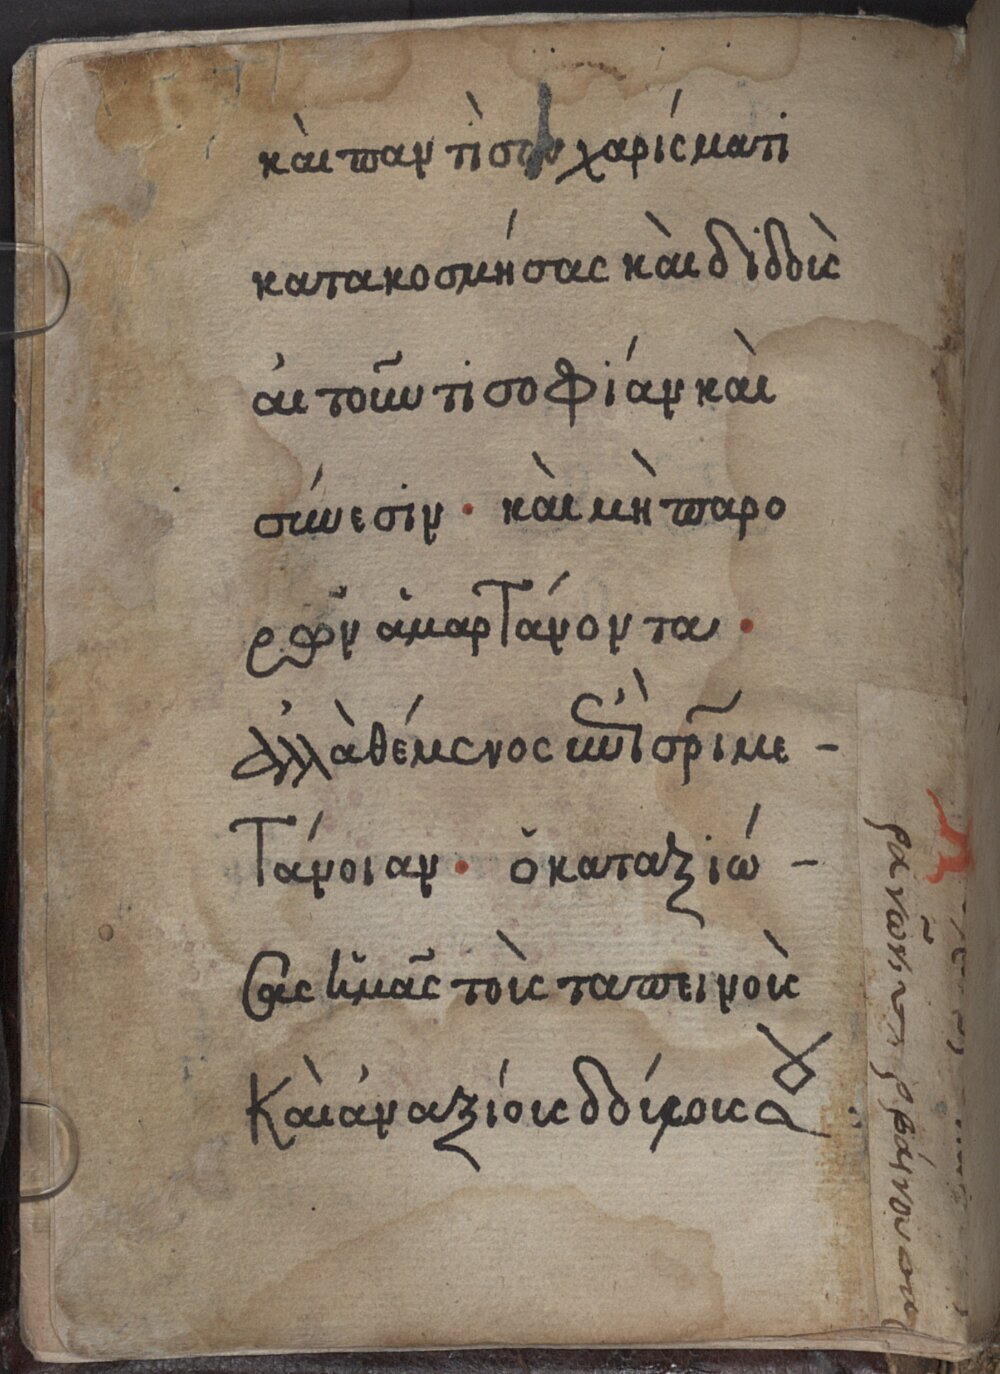 κὰι παντὶ σου χαρίσματι
κατακοσμήσας κὰι διδοὶς
ἀι τοῦντι σοφίαν κὰι
σύνεσιν · κὰι μὴ παρο
ρῶν ἁμαρτάνοντα ·
ἀλλὰ θέμενος ἐπὶ σρῖ με –
τάνοιαν · ὁ καταξιώ –
σας ἡμᾶς τοὶς ταπεινοὶς
Καὶ ἀναξίοις δούλοις σου